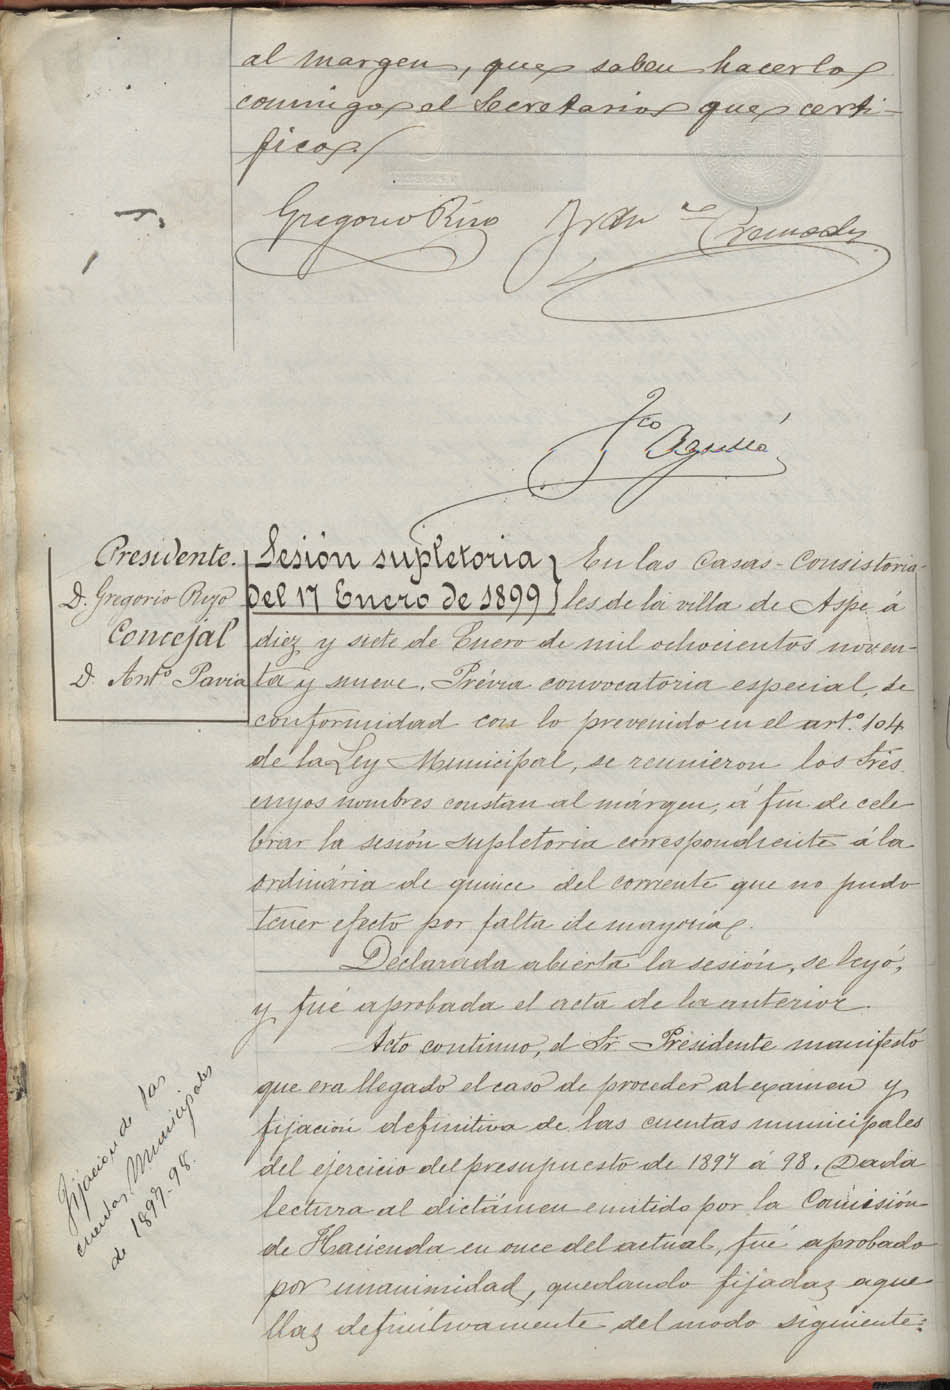 al margen, que saben hacerlo,
conmigo, el Secretario, que certi-
fico./
Gregorio Rizo
Fco
Presidente.
D. Gregorio Rizo
Concejal
D. Antº Pavia
Sesión supletoria
del 17 Enero de 1899
En las Casas-Consistoria-
les de la villa de Aspe á
diez y siete de Enero de mil ochocientos noven-
ta y nueve. Prévia convocatoria especial, de
conformidad con lo prevenido en el artº. 104
de la Ley Municipal, se reunieron los Sres.
cuyos nombres constan al márgen, á fin de cele-
brar la sesión supletoria correspondiente á la
ordinária de quince del corriente que no pudo
tener efecto por falta de mayoria.
Declarada abierta la sesión, se leyó,
y fué aprobada el acta de la anterior.
Acto continuo, el Sr. Présidente manifestó
que era llegado el caso de proceder al exámen y
fijación definitiva de las cuentas municipales
del ejercicio del presupuesto de 1897 á 98. Dada
lectura al dictámen emitido por la Comisión
de Hacienda en once del actual, fué aprobado
por unanimidad, quedando fijadas aque-
llas definitivamente del modo siguiente:
Fijacion de las
cuentas Municipales
de 1897-98.